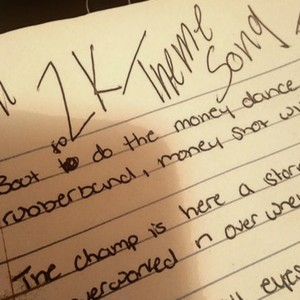 2K Theme Song
Boot do the money dance
so
rubberband, money
The champ is here a
overworked n over
eyes